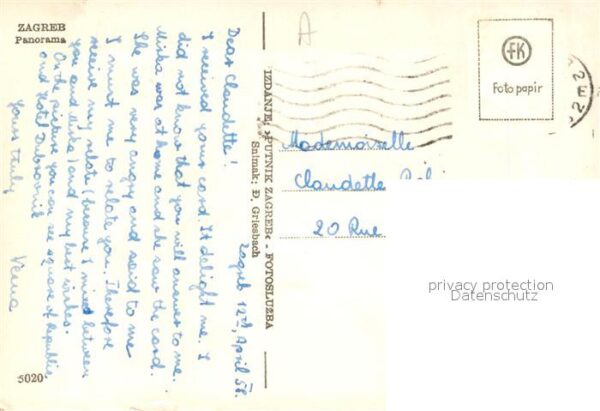 ZAGREB
Panorama
Zagreb 12d, April 58.
Dear Claudette!
I received your card. It delight me. I
did not know that you will answer to me.
Mirka was at home and she saw the card.
She was very angry and said to me
I must me to relate you. Therefore
receive my relate (because I mixed between
you and Mirka) and my best wishes.
On the picture you can see square of Republic
and Hotel Dubrovnik
Yours truly
Vesna
5020
IZDANJE: »PUTNIK ZAGREB« - FOTOSLUŽBA
Snimak: Đ. Griesbach
A
FK
Foto papir
Mademoiselle
Claudette
20 Rue
privacy protection
Datenschutz